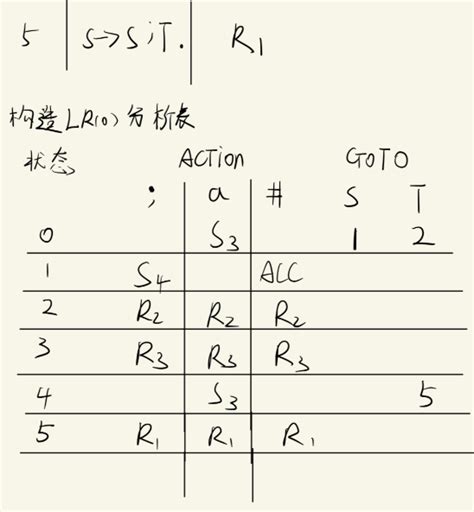 5 S→S;T. R1
构造LR(0)分析表
状态 ACTION GOTO
; a # S T
0 S3 1 2
1 S4 ACC
2 R2 R2 R2
3 R3 R3 R3
4 S3 5
5 R1 R1 R1